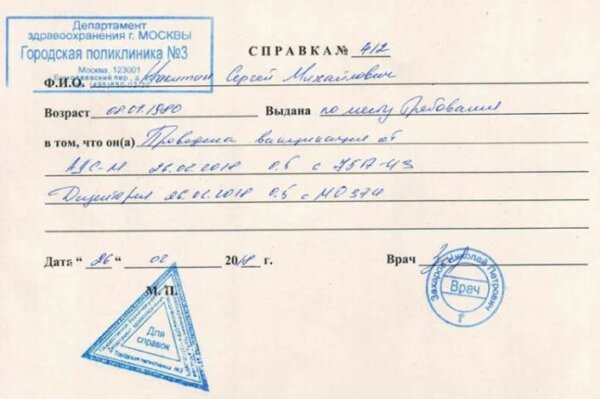 Департамент
здравоохранения г. МОСКВЫ
Городская поликлиника №3
Москва, 123001
СПРАВКА № 412
Ф.И.О. Никитин Сергей Михайлович
Возраст 08.01.1980 Выдана по месту требования
в том, что он(а) Проведена вакцинация от
АДС-М 26.02.2018 0.5 с 75А-43
26.02.2018 0.5 с
Дата " 26 " 02 2018 г. Врач
М. П.
Захаров Николай Петрович
Врач
Для
справок
Городская поликлиника №3